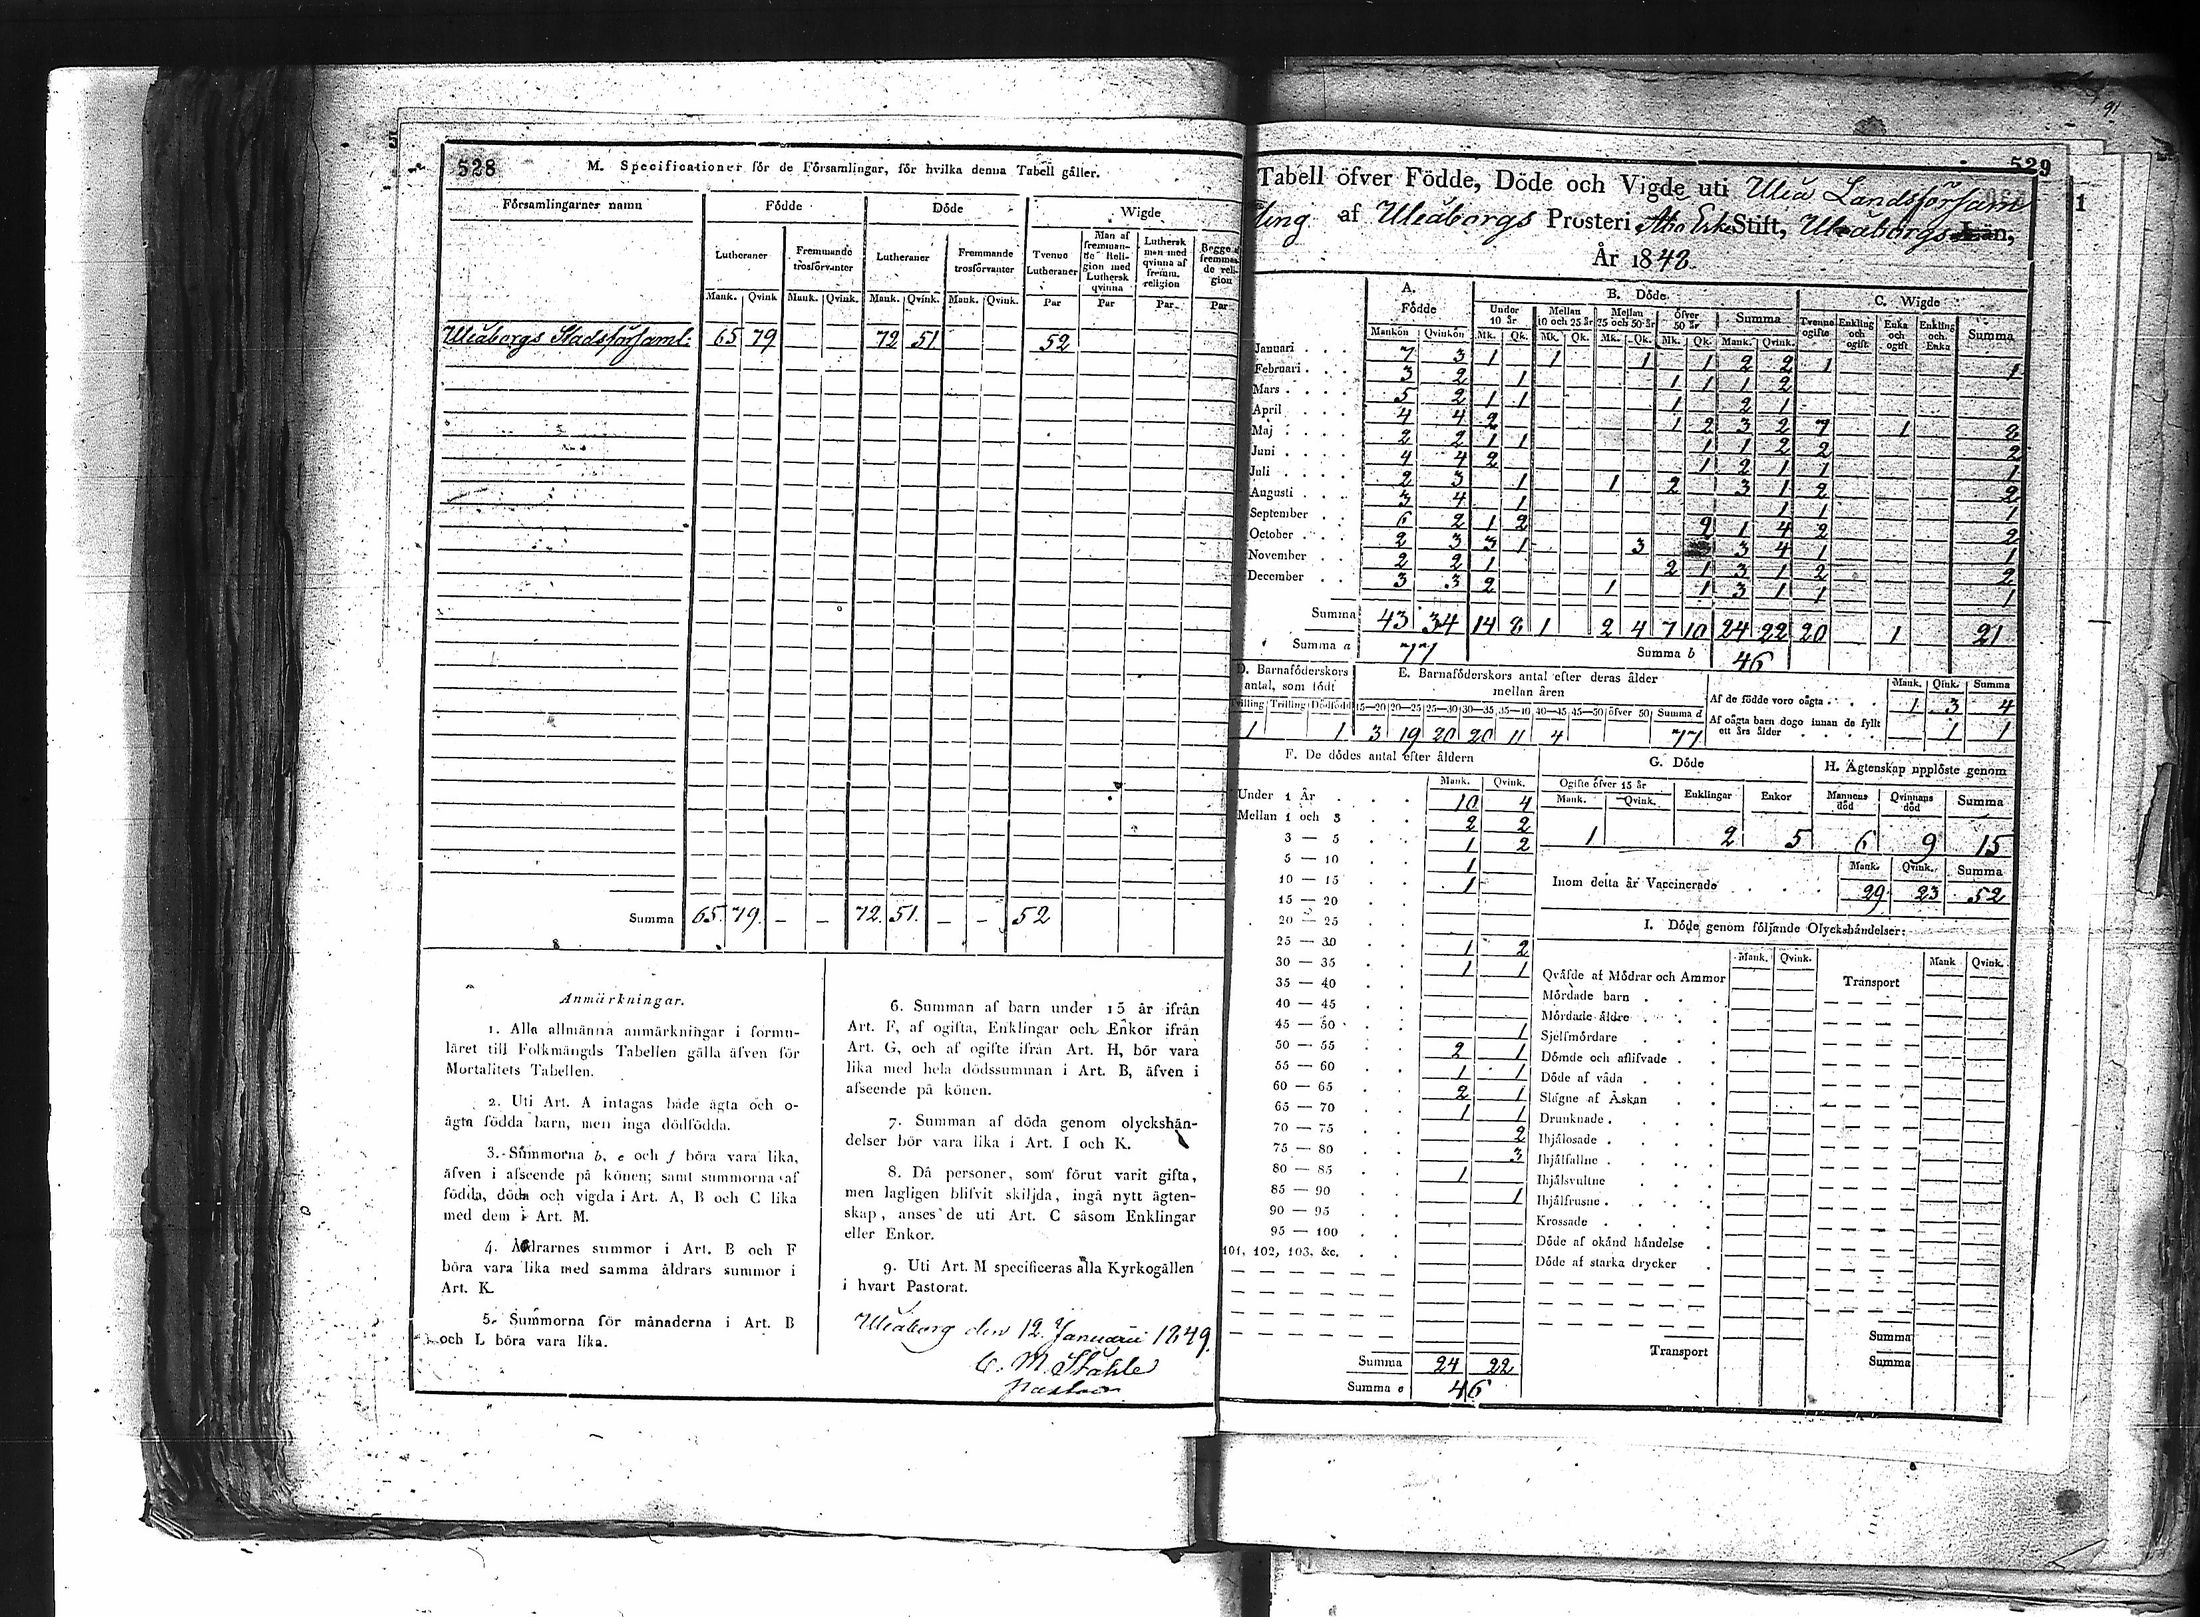 528
M. Specificationer för de Församlingar, för hvilka denna Tabell gäller.
Församlingarnes namn Födde Döde Wigde
Lutheraner Fremmande trosförvanter Lutheraner Fremmande trosförvanter Tvenne Lutheraner Man af fremmande Religion med Luthersk qvinna Luthersk man med qvinna af fremm. religion Begge fremmande religion
Mank. Qvink Mank. Qvink. Mank. Qvink. Mank. Qvink. Par Par Par Par
Uleåborgs Stadsförsaml: 65 79 72 51 52
Summa 65. 79. – – 72. 51. – – 52
Anmärkningar.
1. Alla allmänna anmärkningar i formu-
läret till Folkmängds Tabellen gälla äfven för
Mortalitets Tabellen.
2. Uti Art. A intagas både ägta och o-
ägta födda barn, men inga dödfödda.
3. Summorna b, e och f böra vara lika,
äfven i afseende på könen; samt summorna af
födda, döda och vigda i Art. A, B och C lika
med dem i Art. M.
4. Åldrarnes summor i Art. B och F
böra vara lika med samma åldrars summor i
Art. K.
5. Summorna för månaderna i Art. B
och L böra vara lika.
6. Summan af barn under 15 år ifrån
Art. F, af ogifta, Enklingar och Enkor ifrån
Art. G, och af ogifte ifrån Art. H, bör vara
lika med hela dödssumman i Art. B, äfven i
afseende på könen.
7. Summan af döda genom olyckshän-
delser bör vara lika i Art. I och K.
8. Då personer, som förut varit gifta,
men lagligen blifvit skiljda, ingå nytt ägten-
skap, anses de uti Art. C såsom Enklingar
eller Enkor.
9. Uti Art. M specificeras alla Kyrkogällen
i hvart Pastorat.
Uleåborg den 12 Januarii 1849.
C. M. Ståhle
Pastor
91
529
1
Tabell öfver Födde, Döde och Vigde uti Uleå Landsförsam
ling af Uleåborgs Prosteri, Åbo Erke Stift, Uleåborgs Län,
År 1848.
A. Födde B. Döde C. Wigde
Under 10 år Mellan 10 och 25 år Mellan 25 och 50 år Öfver 50 år Summa Tvenne ogifte Enkling och ogift Enka och ogift Enkling och Enka Summa
Mankön Qvinkön Mk. Qk. Mk. Qk. Mk. Qk. Mk. Qk. Mank. Qvink.
Januari 7 3 1 1 1 1 2 2 1 1
Februari 3 2 1 1 1 1 2
Mars 5 2 1 1 1 2 1
April 4 4 2 1 2 3 2 7 1 8
Maj 2 2 1 1 1 1 2 2 2
Juni 4 4 2 1 2 1 1 1
Juli 2 3 1 1 2 3 1 2 2
Augusti 3 4 1 1 1 1
September 6 2 1 2 2 1 4 2 2
October 2 3 3 1 3 3 4 1 1
November 2 2 1 2 1 3 1 2 2
December 3 3 2 1 1 3 1 1 1
Summa 43 34 14 8 1 2 4 7 10 24 22 20 1 21
Summa a 77 Summa b 46
D. Barnaföderskors antal, som födt
Tvilling Trilling Dödfödd
1 1
E. Barnaföderskors antal efter deras ålder mellan åren
15—20 20—25 25—30 30—35 35—40 40—45 45—50 öfver 50 Summa d
3 19 20 20 11 4 77
Mank. Qvink. Summa
Af de födde voro oägta 1 3 4
Af oägta barn dogo innan de fyllt ett års ålder 1 1
F. De dödes antal efter åldern
Mank. Qvink.
Under 1 År 10 4
Mellan 1 och 3 2 2
3 — 5 1 2
5 — 10 1
10 — 15 1
15 — 20
20 — 25
25 — 30 1 2
30 — 35 1 1
35 — 40
40 — 45
45 — 50 1
50 — 55 2 1
55 — 60 1 1
60 — 65 2 1
65 — 70 1 1
70 — 75 2
75 — 80 3
80 — 85 1
85 — 90 1
90 — 95
95 — 100
101, 102, 103, &c.
Summa 24 22
Summa e 46
G. Döde
Ogifte öfver 15 år Enklingar Enkor
Mank. Qvink.
1 2 5
H. Ägtenskap upplöste genom
Mannens död Qvinnans död Summa
6 9 15
Mank. Qvink. Summa
Inom detta år Vaccinerade 29 23 52
I. Döde genom följande Olyckshändelser:
Mank. Qvink. Mank Qvink.
Qväfde af Mödrar och Ammor Transport
Mördade barn
Mördade äldre
Sjelfmördare
Dömde och aflifvade
Döde af våda
Slagne af Åskan
Drunknade
Ihjälosade
Ihjälfallne
Ihjälsvultne
Ihjälfrusne
Krossade
Döde af okänd händelse
Döde af starka drycker
Summa
Transport Summa